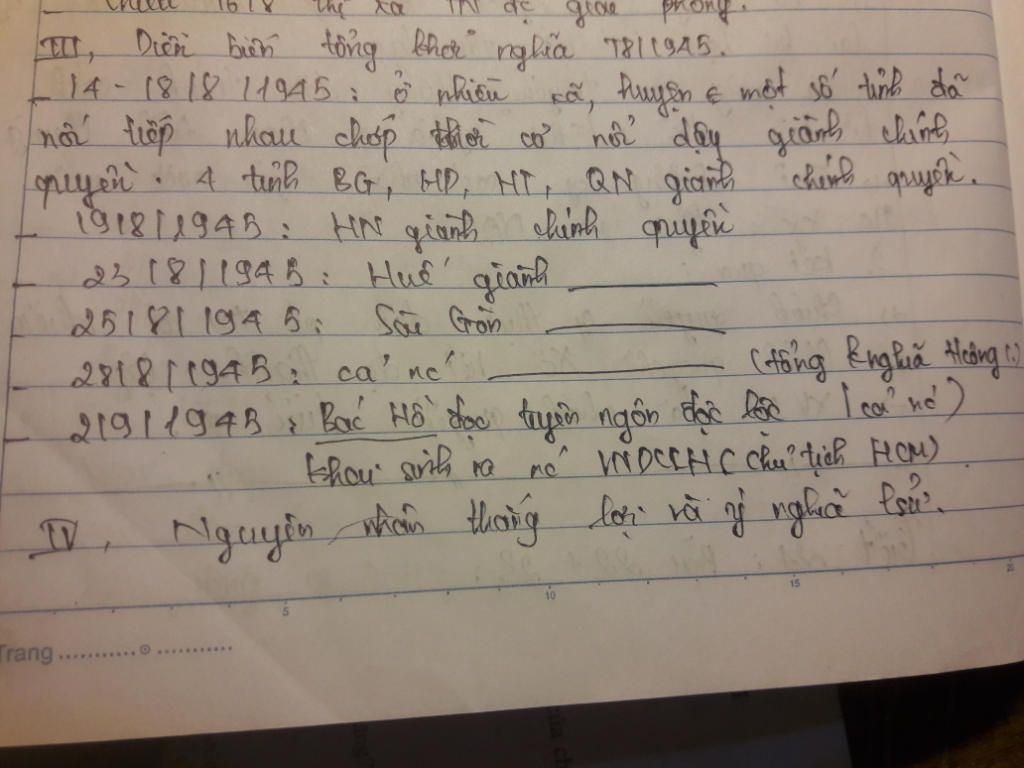 chiều 16/8 thị xã TN đc giải phóng.
III, Diễn biến tổng khởi nghĩa T8/1945.
- 14-18/8/1945: ở nhiều xã, huyện ∈ một số tỉnh đã
nối tiếp nhau chớp thời cơ nổi dậy giành chính
quyền. 4 tỉnh BG, HD, HT, QN giành chính quyền.
- 19/8/1945: HN giành chính quyền
- 23/8/1945: Huế giành ______
- 25/8/1945: Sài Gòn ______
- 28/8/1945: cả nc ______ (tổng k nghĩa thcông)
- 2/9/1945: Bác Hồ đọc tuyên ngôn độc lộc (cả nc)
khai sinh ra nc VNDCCH (chủ tịch HCM)
IV, Nguyên nhân thắng lợi và ý nghĩa lsử.
5 10 15 20
Trang